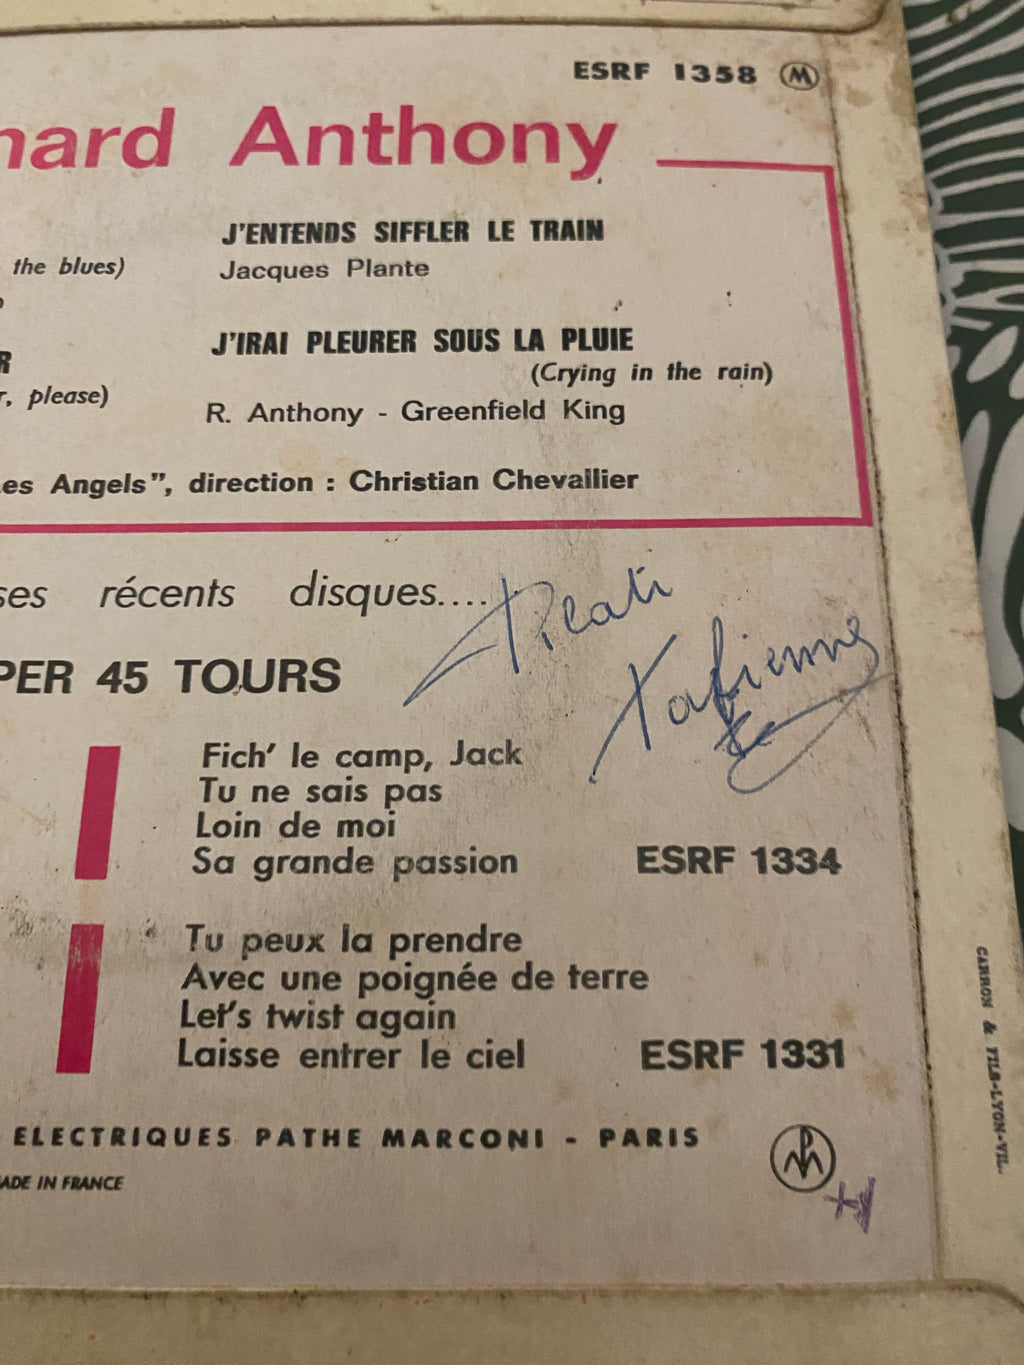 ESRF 1358 M
hard Anthony
J'ENTENDS SIFFLER LE TRAIN
the blues)
Jacques Plante
J'IRAI PLEURER SOUS LA PLUIE
R
(Crying in the rain)
r, please)
R. Anthony - Greenfield King
es Angels", direction : Christian Chevallier
ses récents disques....
Fabienne
PER 45 TOURS
Fich' le camp, Jack
Tu ne sais pas
Loin de moi
Sa grande passion ESRF 1334
Tu peux la prendre
Avec une poignée de terre
Let's twist again
Laisse entrer le ciel ESRF 1331
ELECTRIQUES PATHE MARCONI - PARIS
ADE IN FRANCE
CARRON & FILS-LYON-VIL.